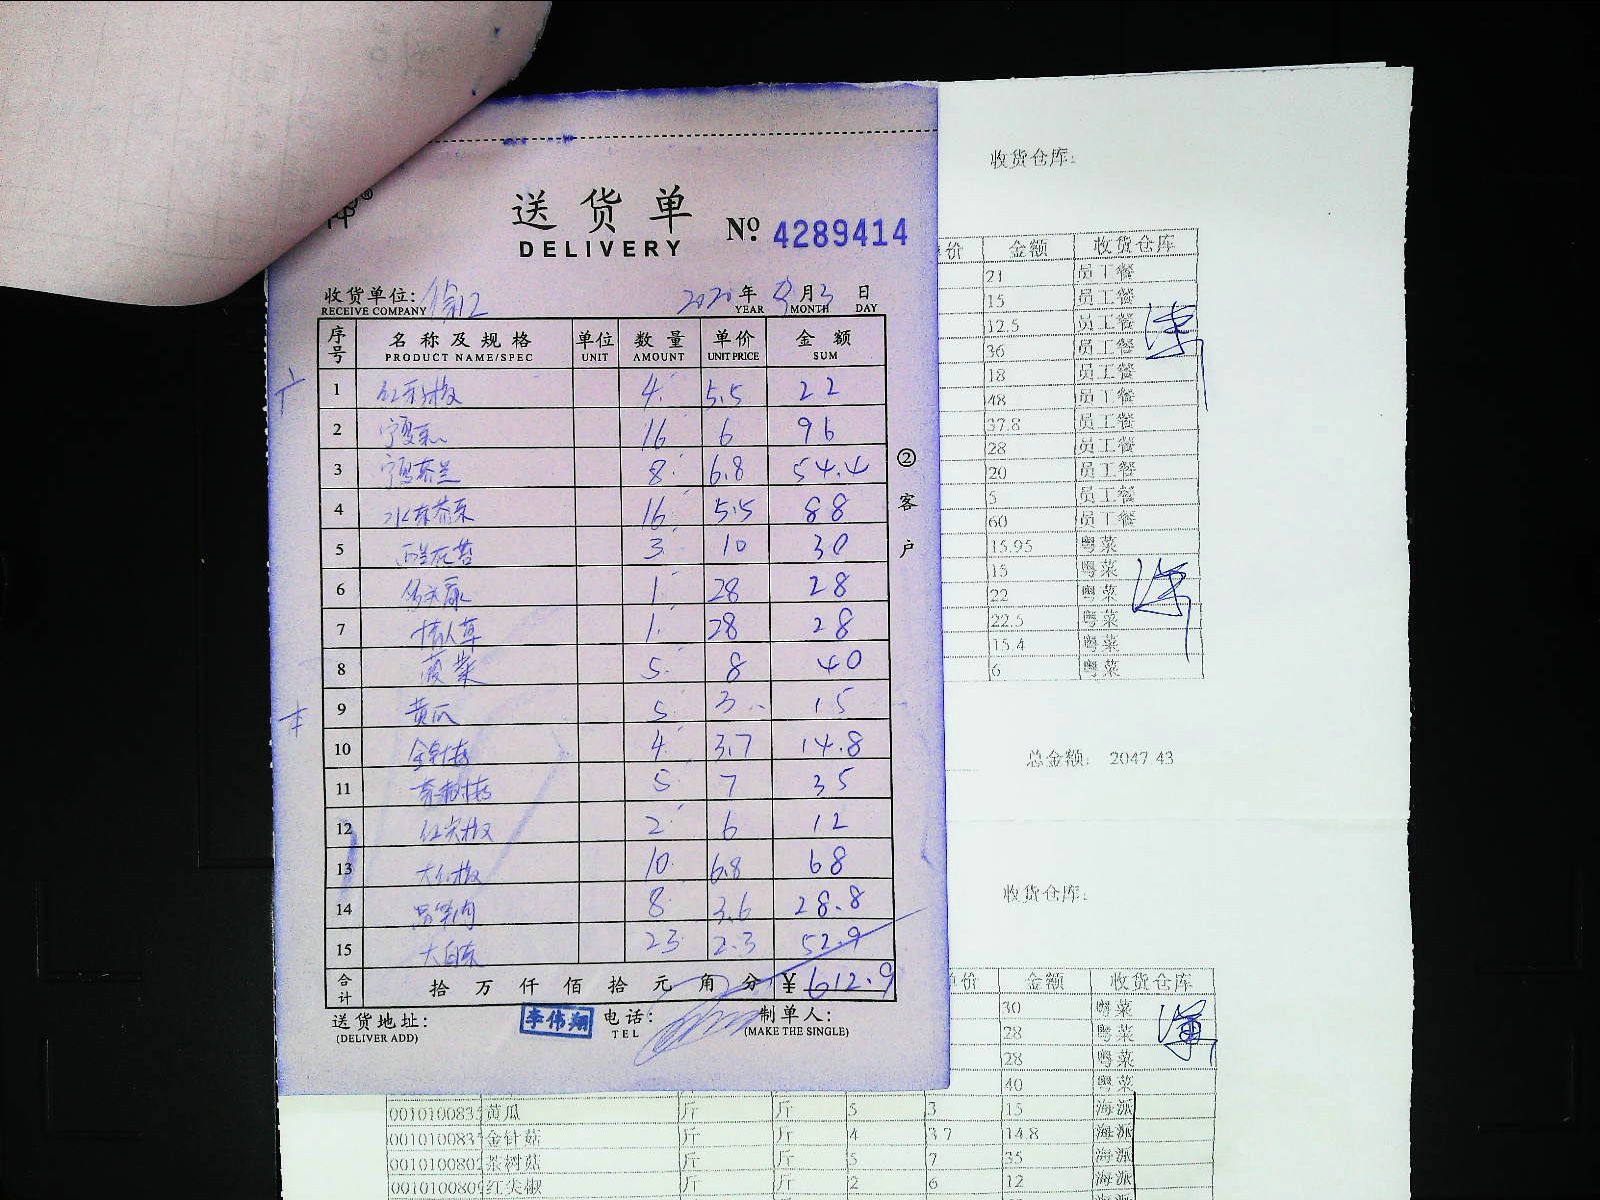 送货单
DELIVERY
No. 4289414
收货单位: 徐汇 2020年 月3日
RECEIVE COMPANY YEAR MONTH DAY
序号 名称及规格 单位 数量 单价 金额
PRODUCT NAME/SPEC UNIT AMOUNT UNIT PRICE SUM
1 4 5.5 22
2 宁夏菜心 16 6 96
3 宁夏芥兰 8 6.8 54.4
4 水东芥菜 16 5.5 88
5 西兰花苔 3 10 30
6 1 28 28
7 情人草 1 28 28
8 菠菜 5 8 40
9 黄瓜 5 3 15
10 金针菇 4 3.7 14.8
11 茶树菇 5 7 35
12 红尖椒 2 6 12
13 大红椒 10 6.8 68
14 8 3.6 28.8
15 大白菜 23 2.3 52.9
合计 拾万仟佰拾元角分 ¥612.9
送货地址: 李伟翔 电话: 制单人:
(DELIVER ADD) TEL (MAKE THE SINGLE)
② 客户
收货仓库:
价 金额 收货仓库
21 员工餐
15 员工餐
12.5 员工餐
36 员工餐
18 员工餐
48 员工餐
37.8 员工餐
28 员工餐
20 员工餐
5 员工餐
60 员工餐
15.95 粤菜
15 粤菜
22 粤菜
22.5 粤菜
15.4 粤菜
6 粤菜
总金额: 2047.43
收货仓库:
单价 金额 收货仓库
30 粤菜
28 粤菜
28 粤菜
40 粤菜
001010083 黄瓜 斤 斤 5 3 15 海派
001010083 金针菇 斤 斤 4 3.7 14.8 海派
001010080 茶树菇 斤 斤 5 7 35 海派
001010080 红尖椒 斤 斤 2 6 12 海派